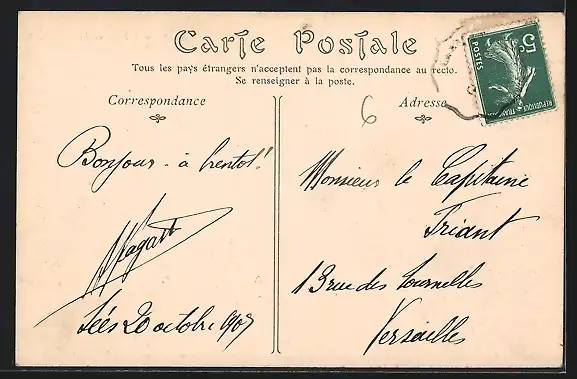 Carte Postale
Tous les pays étrangers n'acceptent pas la correspondance au recto.
Se renseigner à la poste.
Correspondance
Adresse
6
5c
POSTES
REPUBLIQUE FRANÇAISE
Bonjour - à bientôt!
Sées 20 octobre 1907
Monsieur le Capitaine
Friant
13 rue des Tournelles
Versailles